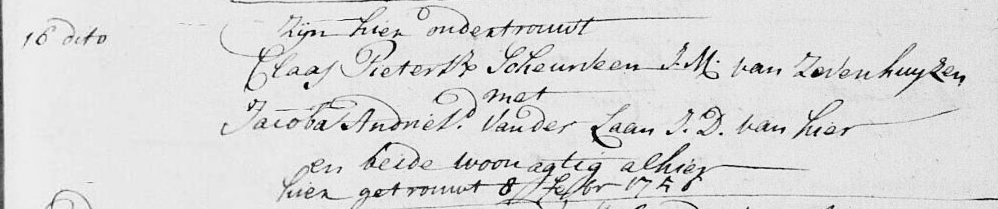 16 dito zijn hier ondertrouwt
Claas Pietersz Scheurleen J.M. van Zevenhuyzen
met
Jacoba Andries.d Vander Laan J.D. van hier
en beide woonagtig alhier
hier getrouwt 8 febr